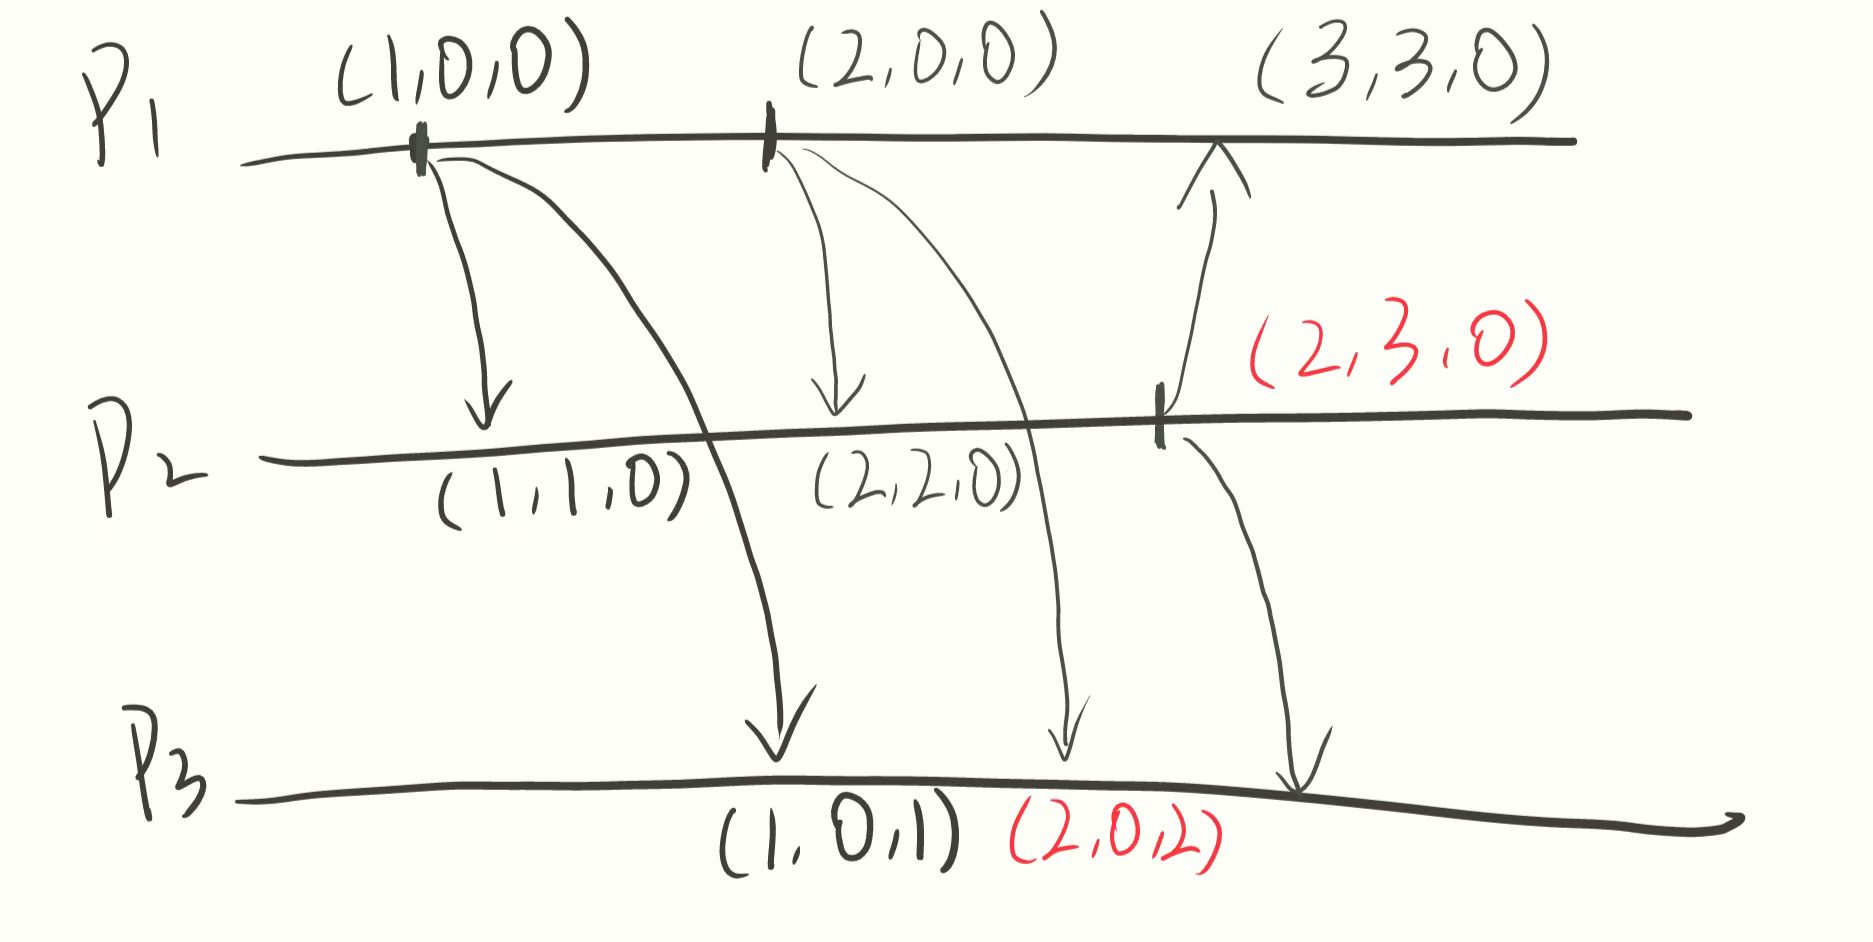 P1 (1,0,0) (2,0,0) (3,3,0)
(2,3,0)
P2 (1,1,0) (2,2,0)
P3 (1,0,1) (2,0,2)